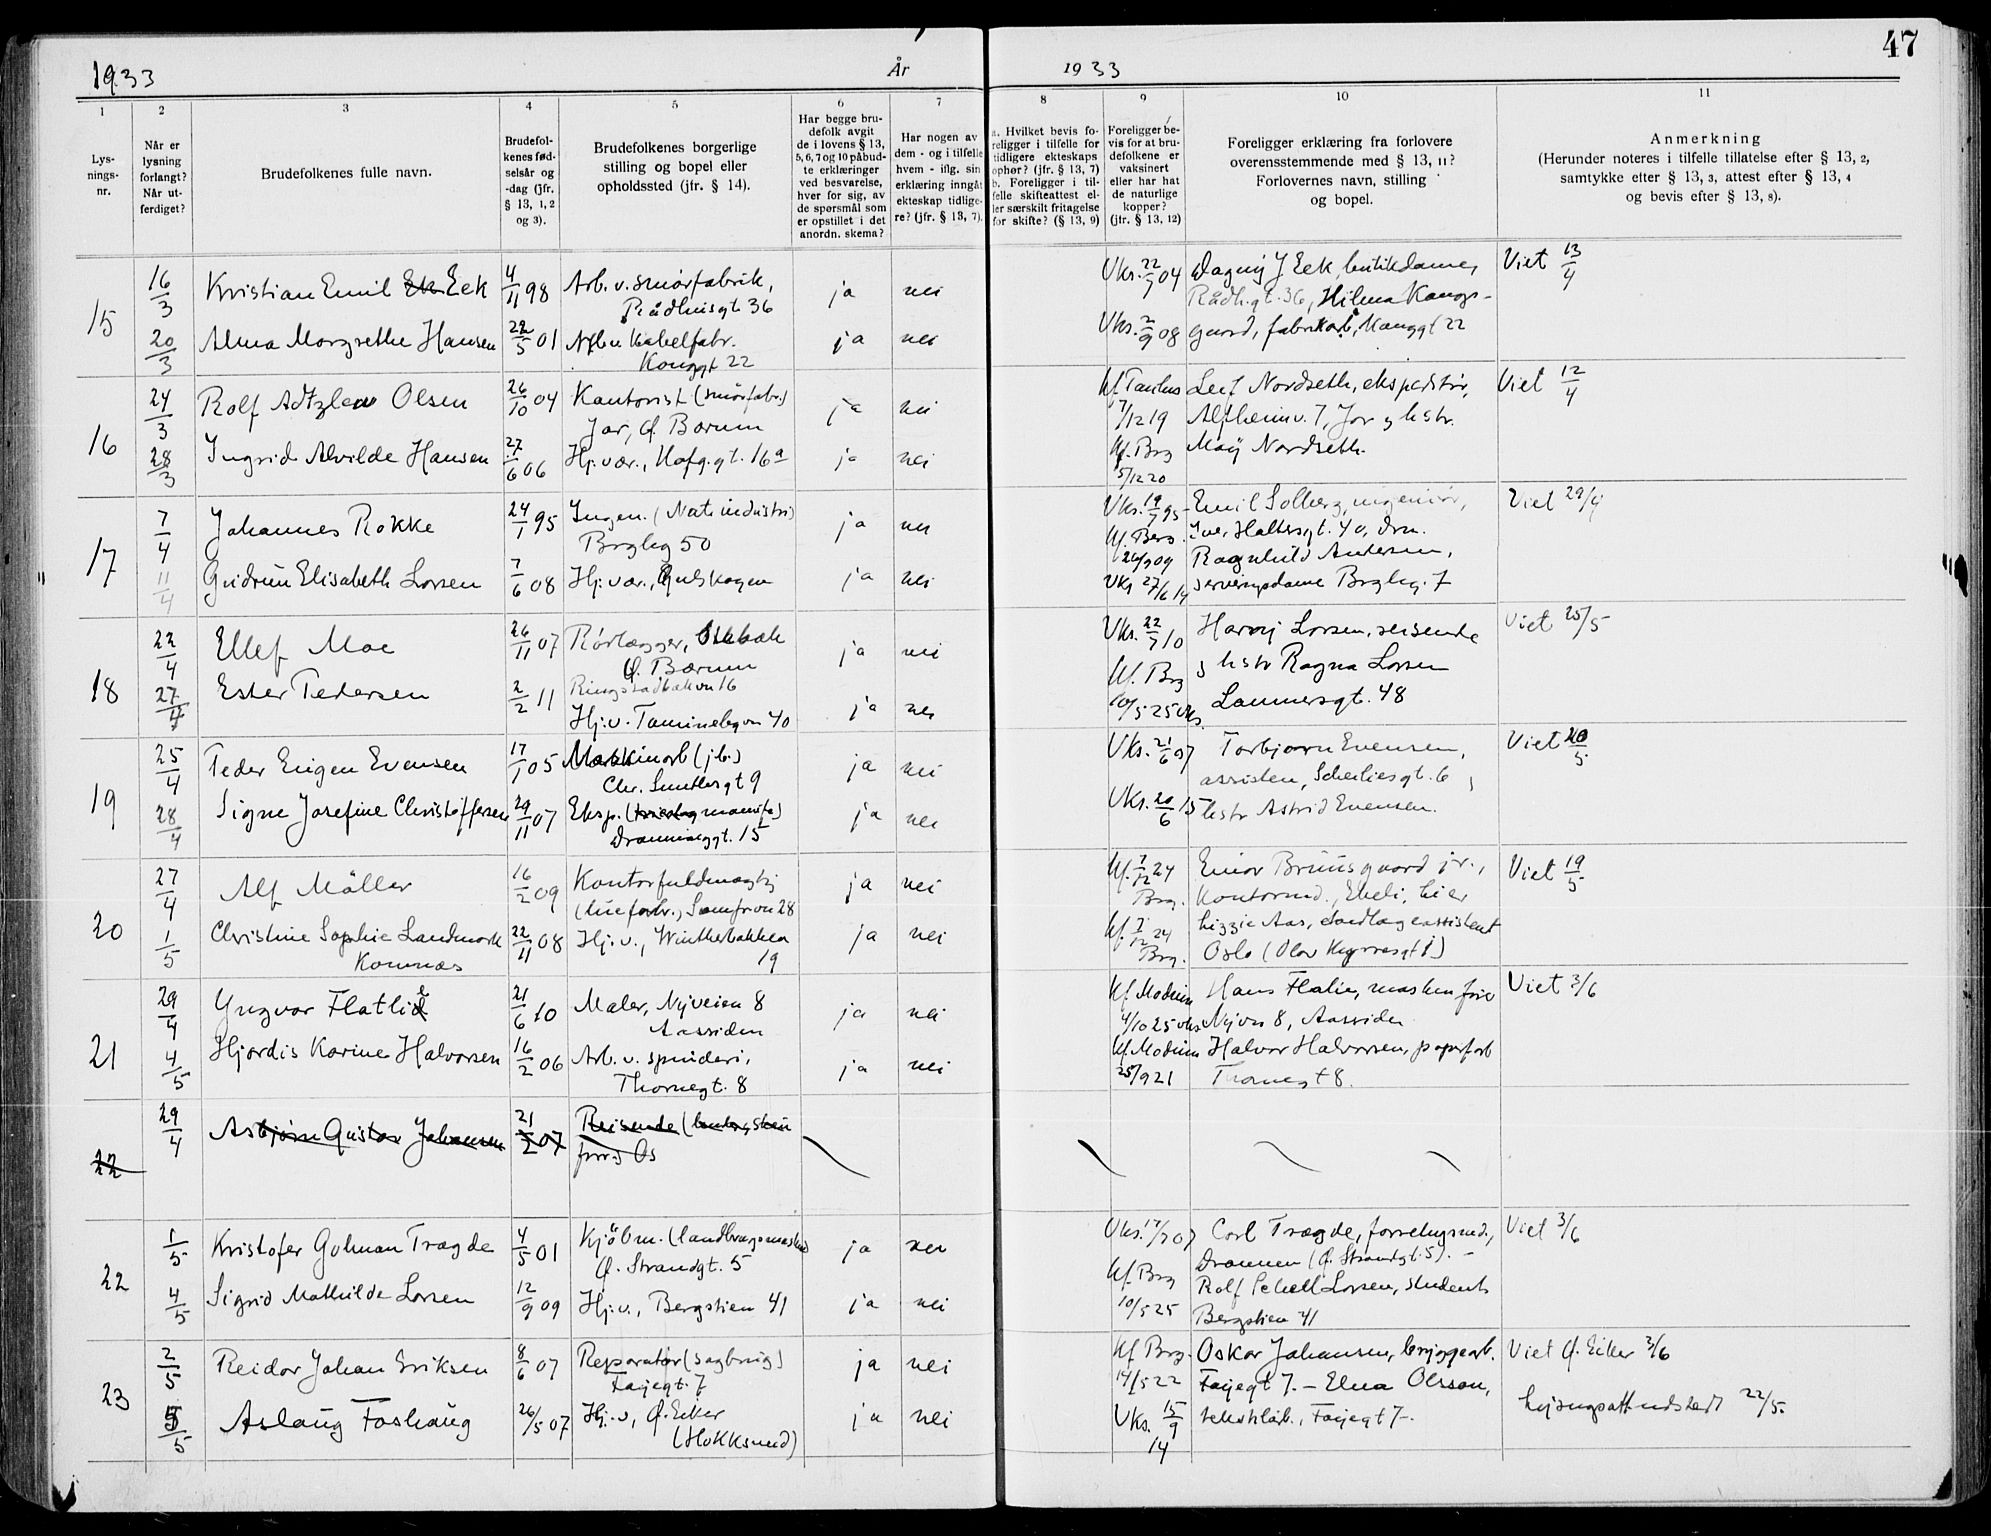 47
1933
År
1933
1
2
3
4
5
6
7
8
9
10
11
Lys-
nings-
nr.
Når er
lysning
forlangt?
Når ut-
ferdiget?
Brudefolkenes fulle navn.
Brudefol-
kenes fød-
selsår og
-dag (jfr.
§ 13, 1, 2
og 3).
Brudefolkenes borgerlige
stilling og bopel eller
opholdssted (jfr. § 14).
Har begge bru-
defolk avgit
de i lovens § 13,
5, 6, 7 og 10 påbud-
te erklæringer
ved besvarelse,
hver for sig, av
de spørsmål som
er opstillet i det
anordn. skema?
Har nogen av
dem - og i tilfelle
hvem - iflg. sin
erklæring inngåt
ekteskap tidlige-
re? (jfr. § 13, 7).
a. Hvilket bevis fo-
religger i tilfelle for
tidligere ekteskaps
ophør? (jfr. § 13, 7)
b. Foreligger i til-
felle skifteattest el-
ler særskilt fritagelse
for skifte? (§ 13, 9)
Foreligger be-
vis for at bru-
defolkene er
vaksinert
eller har hat
de naturlige
kopper?
(jfr. § 13, 12)
Foreligger erklæring fra forlovere
overensstemmende med § 13, 11?
Forlovernes navn, stilling
og bopel.
Anmerkning
(Herunder noteres i tilfelle tillatelse efter § 13, 2,
samtykke efter § 13, 3, attest efter § 13, 4
og bevis efter § 13, 8).
15
16/3 Kristian Emil Ek Eek 4/11 98 Arb. v. smørfabrik,
Rådhusgt 36
ja nei Vks. 22/7 04 Dagny J Eek, butikdame,
Rådh.gt. 36, Hilma Kongs-
Viet 13/4
20/3 Alma Margrethe Hansen 22/5 01 kabelfabr.
Konggt 22
ja nei Vks. 2/9 08 gard, fabrikarb, Konggt 22
16
24/3 Rolf Olsen 26/10 04 Kontorist (smørfabr.)
Jar, Ø. Bærum
ja nei 7/12 19 Leif Nordseth, ekspeditør,
Alfheimv. 7, Jar og hstr.
Viet 12/4
28/3 Ingrid Alvilde Hansen 27/6 06 Hj. vær., Hafg.gt. 16a
ja nei Kf. Brg
5/12 20
May Nordseth.
17
7/4 Johannes Rokke 24/1 95 Ingen. (Nat. industri)
Brgleg 50
ja nei Vks. 19/7 95 Emil Solberg, ingeniør,
Iver Hallersgt. 40, Drm.
Viet 29/4
11/4 Gudrun Elisabeth Larsen 7/6 08 Hj. vær., Gulskogen
ja nei Ragnhild Andersen,
Vks 27/6 14 serveringsdame Brgleg. 7
18
22/4 Ellef Moe 26/11 07 Rørlægger,
Ø. Bærum
ja nei Vks. 22/7 10 Harry Larsen, reisende
Viet 25/5
27/4 Ester Pedersen 2/2 11 16
Hj. v. 40
ja nei Kf. Brg
10/5 25 vks
og hstr Ragna Larsen
Lammersgt. 48
19
25/4 Peder Eugen Evensen 17/1 05 Maskinarb (jb.)
Chr. gt 9
ja nei Vks. 21/6 07 Torbjørn Evensen,
assisten, gt. 6,
Viet 20/5
28/4 Signe Josefine Christoffersen 29/11 07 Eksp. (manufa)
Dronninggt. 15
ja nei Vks. 20/6 15 hstr Astrid Evensen.
20
27/4 Alf Möller 16/2 09 Kontorfuldmægtig
(huefabr.), 28
ja nei Kf. 7/12 24
Brg.
Einar Bruusgaard jr.,
Kontormd., her
Viet 19/5
1/5 Christine Sophie Landmark
Komnæs
22/11 08 Hj. v., Vintherbakken
19
ja nei Kf. 7/12 24
Brg.
Lizzie Aas,
Oslo (Olav Kyrresgt 1)
21
29/4 Yngvar Flatlie 21/6 10 Maler, Nyveien 8
Aassiden
ja nei Kf Modum
4/10 25 vks
Hans Flalie,
Nyvn 8, Aassiden
Viet 3/6
4/5 Hjørdis Karine Halvorsen 16/2 06 Arb. v. spinderi,
Thornegt. 8
ja nei Kf Modum
25/9 21
Halvor Halvorsen, papirfarb
Thornegt 8.
22
29/4 Asbjørn Gustav Johansen 21/2 07 Reisende
Os
22
1/5 Kristofer Golman Trægde 4/5 01 Kjøbm. (landbrugsmask)
Ø. Strandgt. 5
ja nei Vks. 17/7 07 Carl Trægde, forretngsmd.,
Drammen (Ø. Strandgt. 5). -
Viet 3/6
4/5 Sigrid Mathilde Larsen 12/9 09 Hj. v., Bergstien 41
ja nei Kf. Brg
10/5 25
Rolf Schell Larsen, student
Bergstien 41
23
2/5 Reidar Johan Eriksen 8/6 07 Reparatør (sagbrug)
Færjegt. 7
ja nei Kf Brg.
14/5 22
Oskar Johansen, bryggearb.
Færjegt 7. - Elna Olsson,
Viet Ø. Eiker 3/6
5/5 Aslaug Foshaug 26/5 07 Hj. v., Ø. Eiker
(Hokksund)
ja nei Vks. 15/9
14
tekstilarb., Færjegt 7-.
Lysngsatt udstedt 22/5.